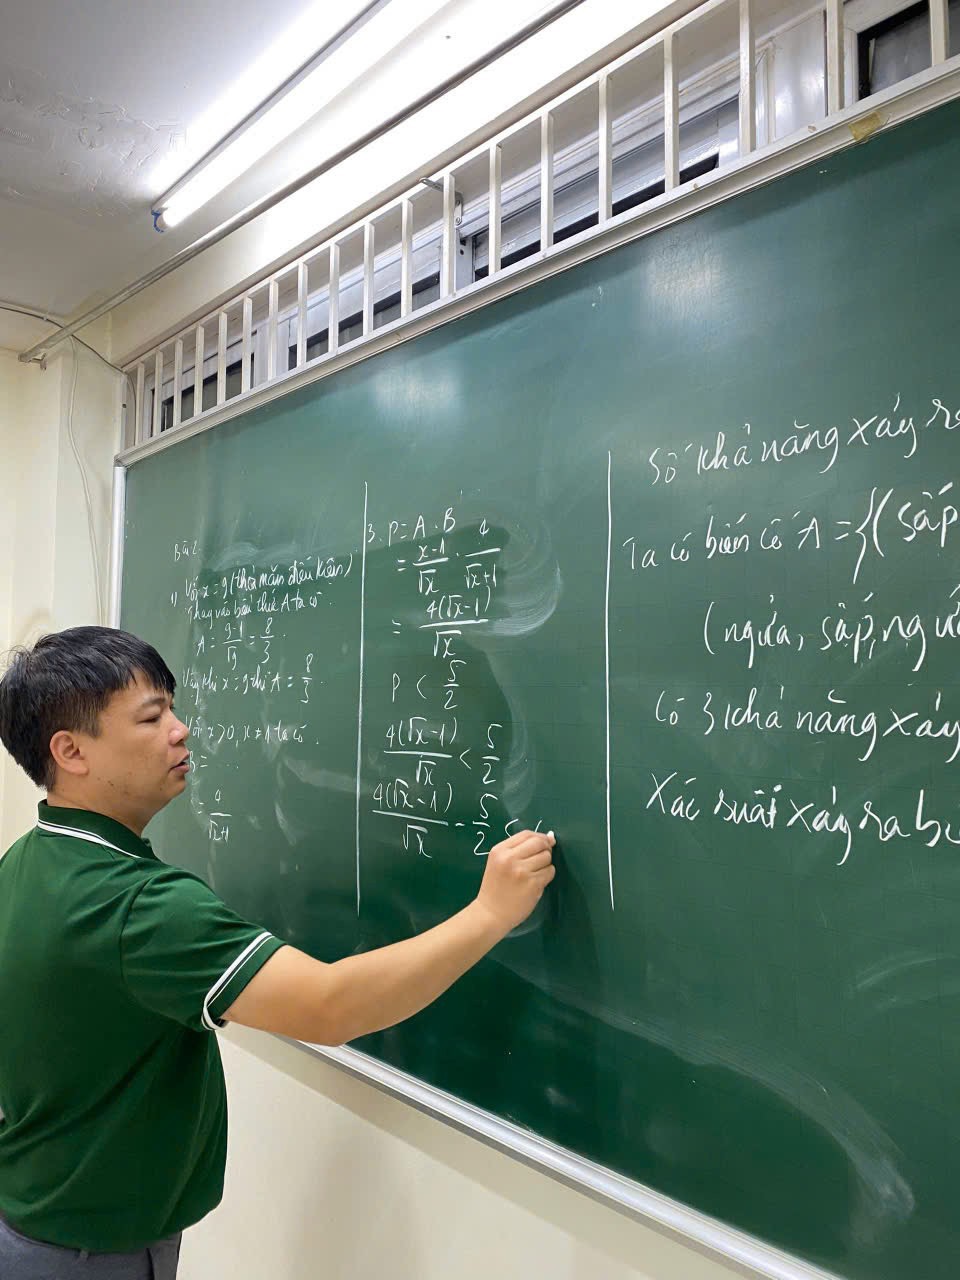 Bài 2
1) Với x = 9 (thoả mãn điều kiện)
Thay vào biểu thức A ta có:
A = 9-1/√9 = 8/3.
Vậy khi x = 9 thì A = 8/3.
Với x > 0, x ≠ 1 ta có.
B = ...
= 4/√x+1
3. P = A . B
= x-1/√x . 4/√x+1
= 4(√x-1)/√x
P < 5/2
4(√x-1)/√x < 5/2
4(√x-1)/√x - 5/2 <
Số khả năng xảy ra
Ta có biến cố A = {(sấp
(ngửa, sấp, ngửa
Có 3 khả năng xảy
Xác suất xảy ra